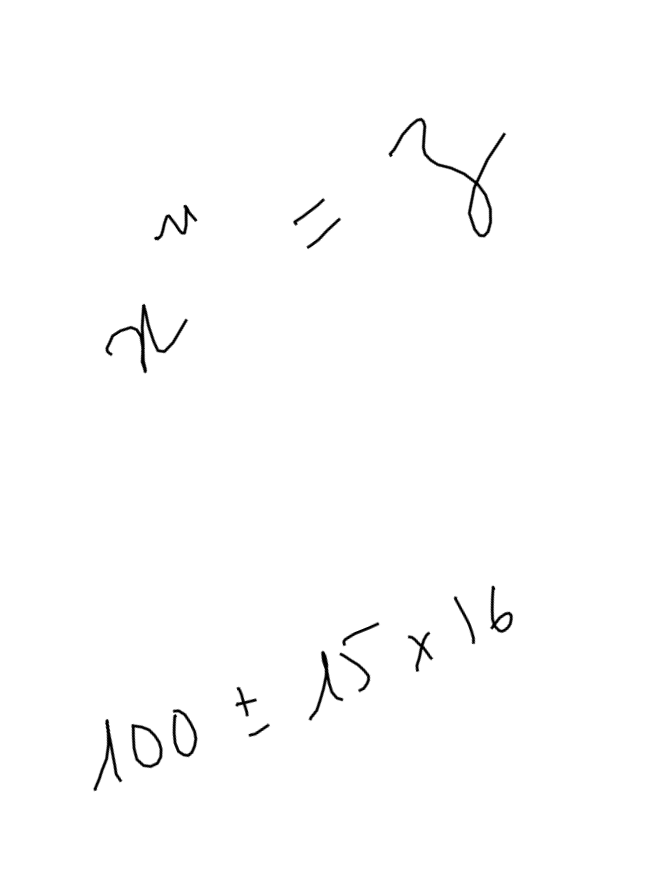 x^n = γ
100 ± 15 × 16